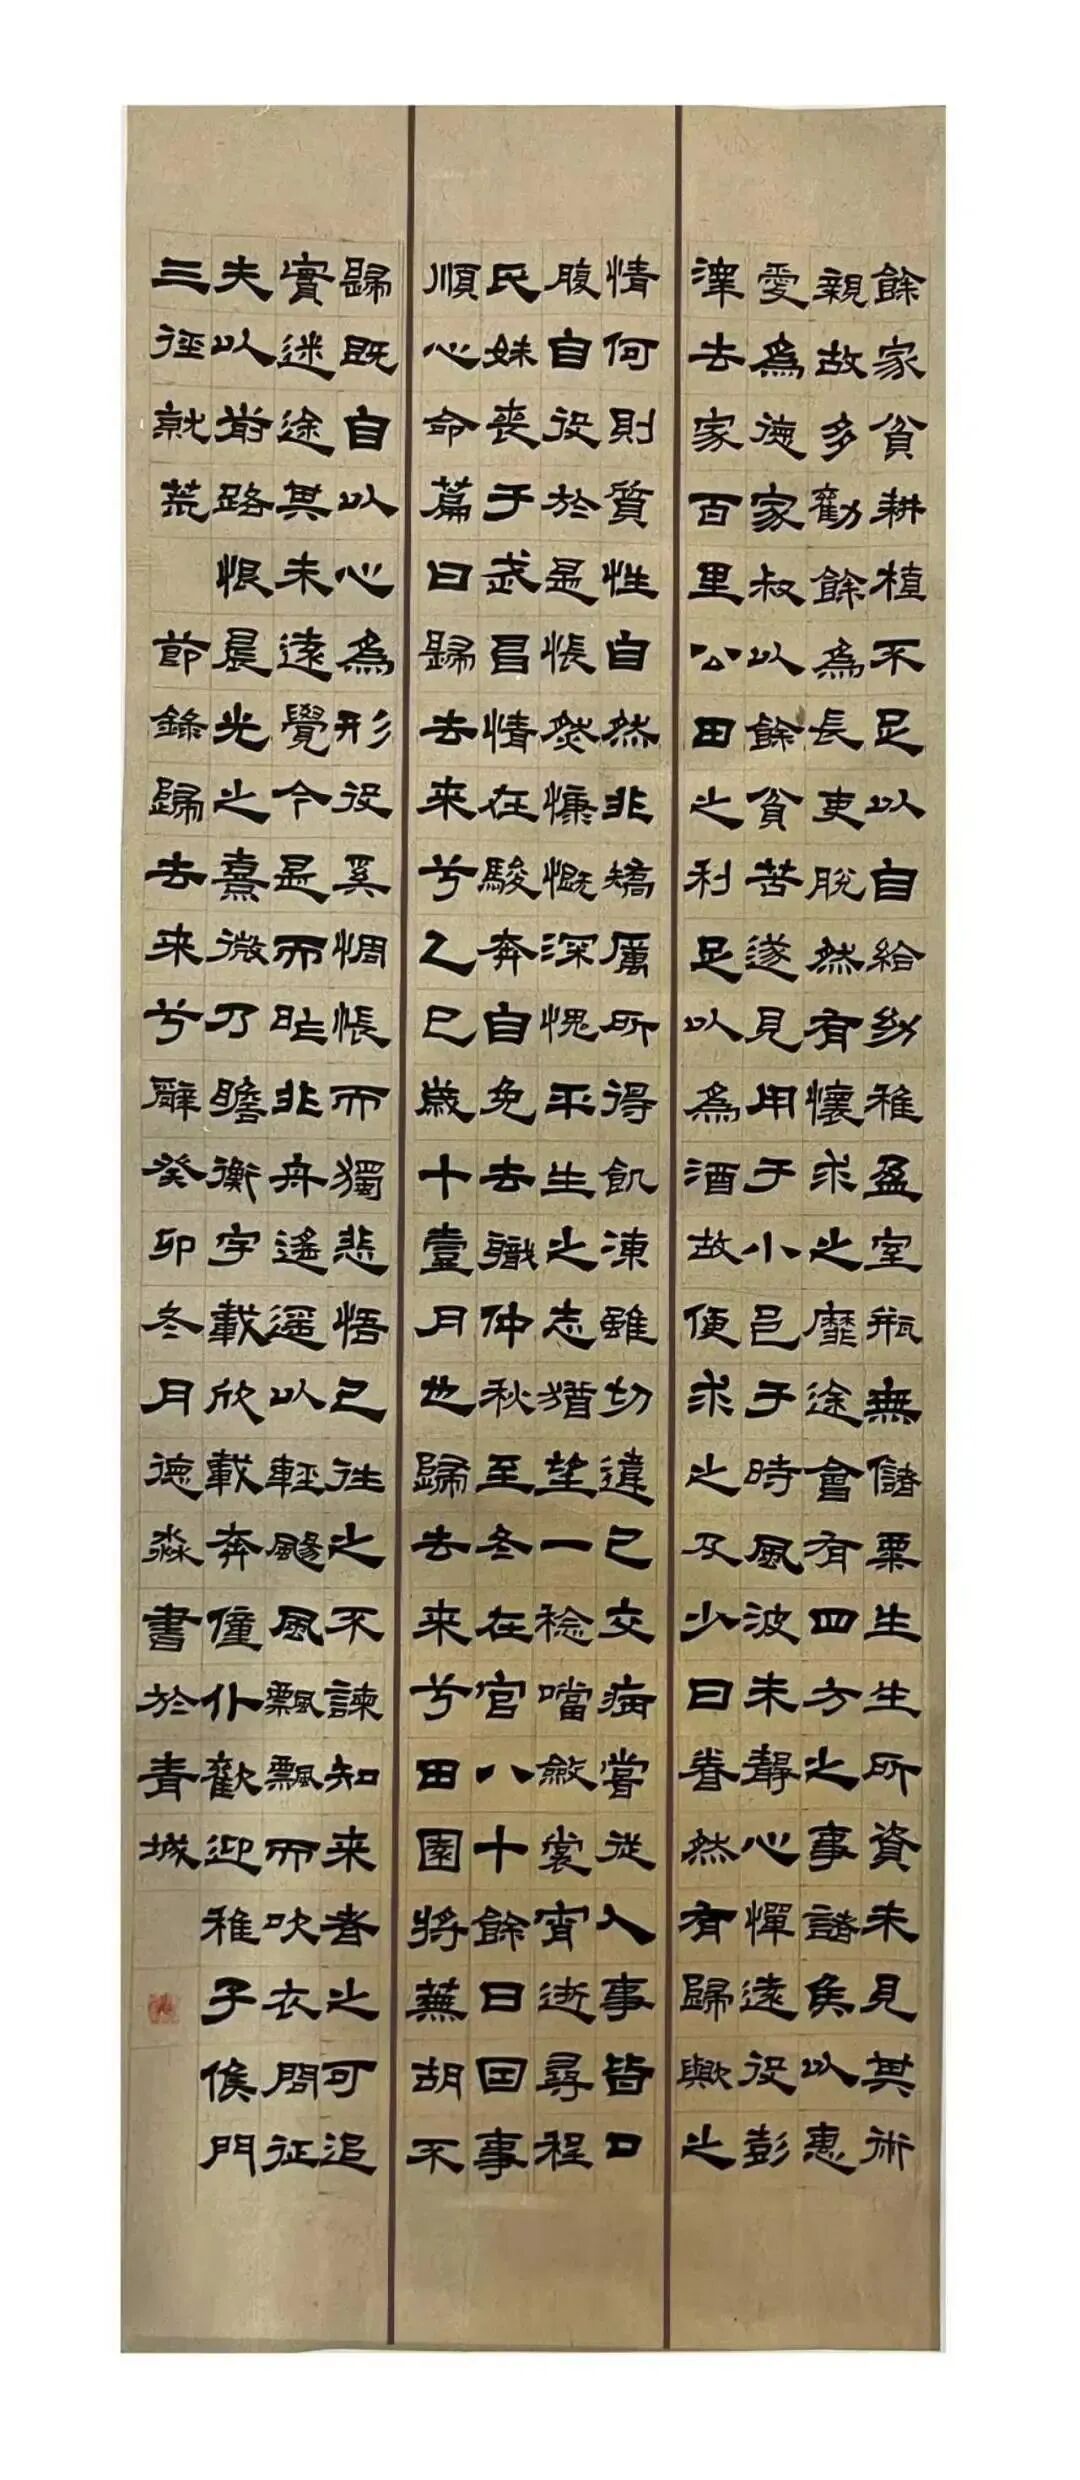 餘家貧耕植不足以自給幼稚盈室瓶無儲粟生生所資未見其術
親故多勸餘為長吏脫然有懷求之靡途會有四方之事諸侯以惠
愛為德家叔以餘貧苦遂見用于小邑于時風波未靜心憚遠役彭
澤去家百里公田之利足以為酒故便求之及少日眷然有歸歟之
情何則質性自然非矯厲所得飢凍雖切違己交病嘗從人事皆口
腹自役於是悵然慷慨深愧平生之志猶望一稔噹斂裳宵逝尋程
氏妹喪于武昌情在駿奔自免去職仲秋至冬在官八十餘日因事
順心命篇曰歸去來兮乙巳歲十壹月也歸去來兮田園將蕪胡不
歸既自以心為形役奚惆悵而獨悲悟已往之不諫知来者之可追
實迷途其未遠覺今是而昨非舟遙遥以輕颺風飄飄而吹衣問征
夫以前路恨晨光之熹微乃瞻衡宇載欣載奔僮仆歡迎稚子候門
三徑就荒 節錄歸去来兮辭癸卯冬月德淼書於青城